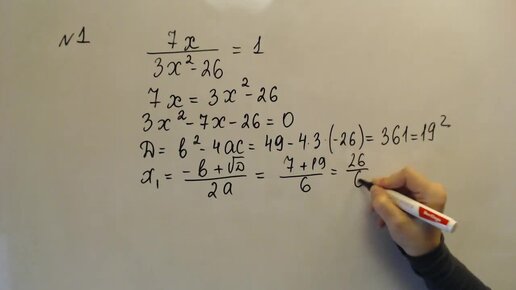 №1
7x / (3x² - 26) = 1
7x = 3x² - 26
3x² - 7x - 26 = 0
D = b² - 4ac = 49 - 4·3·(-26) = 361 = 19²
x₁ = (-b + √D) / 2a = (7 + 19) / 6 = 26 / 6